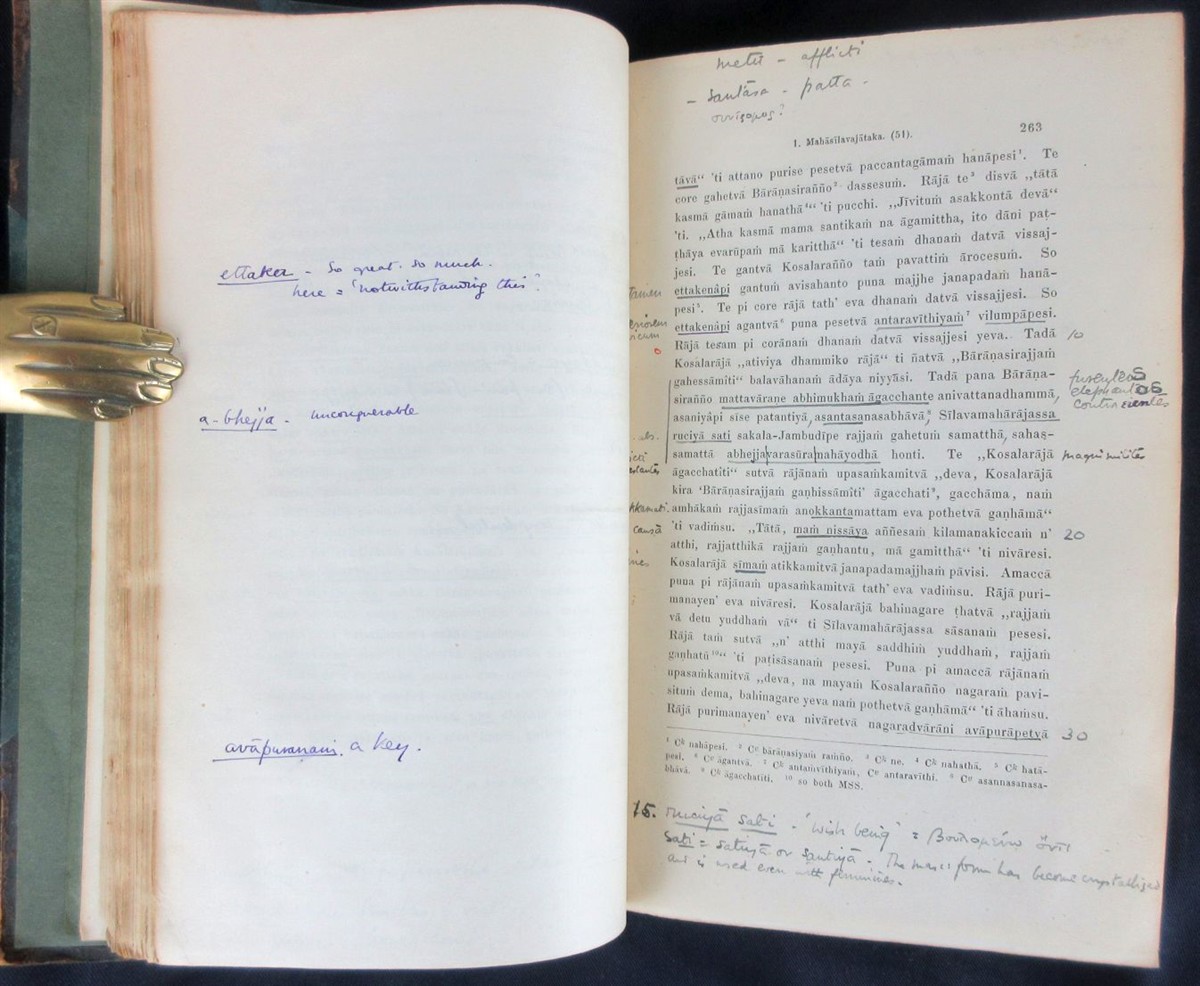 ettaken - So great. so much.
here = 'notwithstanding this'.
a-bhejja - unconquerable
avāpuraṇaṁ. a key.
metū - afflicti
- santāsa - patta -
1. Mahāsīlavajātaka. (51).
263
tāvā“ 'ti attano purise pesetvā paccantagāmaṁ hanāpesi¹. Te
core gahetvā Bārāṇasirañño² dassesuṁ. Rājā te³ disvā „tātā
kasmā gāmaṁ hanathā⁴“ 'ti pucchi. „Jīvituṁ asakkontā devā“
'ti. „Atha kasmā mama santikaṁ na āgamittha, ito dāni paṭ-
ṭhāya evarūpaṁ mā karitthā“ 'ti tesaṁ dhanaṁ datvā vissaj-
jesi. Te gantvā Kosalarañño taṁ pavattiṁ ārocesuṁ. So
ettakenâpi gantuṁ avisahanto puna majjhe janapadaṁ hanā-
pesi⁵. Te pi core rājā tath' eva dhanaṁ datvā vissajjesi. So
ettakenâpi agantvā⁶ puna pesetvā antaravīthiyaṁ⁷ vilumpāpesi.
Rājā tesam pi corānaṁ dhanaṁ datvā vissajjesi yeva. Tadā
10
Kosalarājā „ativiya dhammiko rājā“ ti ñatvā „Bārāṇasirajjaṁ
gahessāmîti“ balavāhanaṁ ādāya niyyāsi. Tadā pana Bārāṇa-
sirañño mattavāraṇe abhimukhaṁ āgacchante anivattanadhammā,
elephantos
asaniyāpi sīse patantiyā, asantasanasabhāvā⁸, Sīlavamahārājassa
ruciyā sati sakala-Jambudīpe rajjaṁ gahetuṁ samatthā, sahas-
samattā abhejjavarasūramahāyodhā honti. Te „Kosalarājā
āgacchatîti“ sutvā rājānaṁ upasaṁkamitvā „deva, Kosalarājā
kira 'Bārāṇasirajjaṁ gaṇhissāmîti' āgacchati⁹, gacchāma, naṁ
amhākaṁ rajjasīmaṁ anokkantamattam eva pothetvā gaṇhāmā“
'ti vadiṁsu. „Tātā, maṁ nissāya aññesaṁ kilamanakiccaṁ n'
20
atthi, rajjatthikā rajjaṁ gaṇhantu, mā gamitthā“ 'ti nivāresi.
Kosalarājā sīmaṁ atikkamitvā janapadamajjhaṁ pāvisi. Amaccā
puna pi rājānaṁ upasaṁkamitvā tath' eva vadiṁsu. Rājā puri-
manayen' eva nivāresi. Kosalarājā bahinagare ṭhatvā „rajjaṁ
vā detu yuddhaṁ vā“ ti Sīlavamahārājassa sāsanaṁ pesesi.
Rājā taṁ sutvā „n' atthi mayā saddhiṁ yuddhaṁ, rajjaṁ
gaṇhatū¹⁰“ 'ti paṭisāsanaṁ pesesi. Puna pi amaccā rājānaṁ
upasaṁkamitvā „deva, na mayaṁ Kosalarañño nagaraṁ pavi-
situṁ dema, bahinagare yeva naṁ pothetvā gaṇhāmā“ 'ti āhaṁsu.
Rājā purimanayen' eva nivāretvā nagaradvārāni avāpurāpetvā
30
¹ Cᵏ nahāpesi. ² Cᵛ bārāṇasiyaṁ raṁño. ³ Cᵏ ne. ⁴ Cᵏ nahathā. ⁵ Cᵏ hatā-
pesi. ⁶ Cᵛ āgantvā. ⁷ Cᵏ antaṁvīthiyaṁ, Cᵛ antaravīthi. ⁸ Cᵛ asannasanasa-
bhāvā. ⁹ Cᵏ āgacchatīti. ¹⁰ so both MSS.
15. ruciyā sati - 'wish being' =
sati = satiyā or santiyā - The masc form has become crystallized
and is used even with feminines.